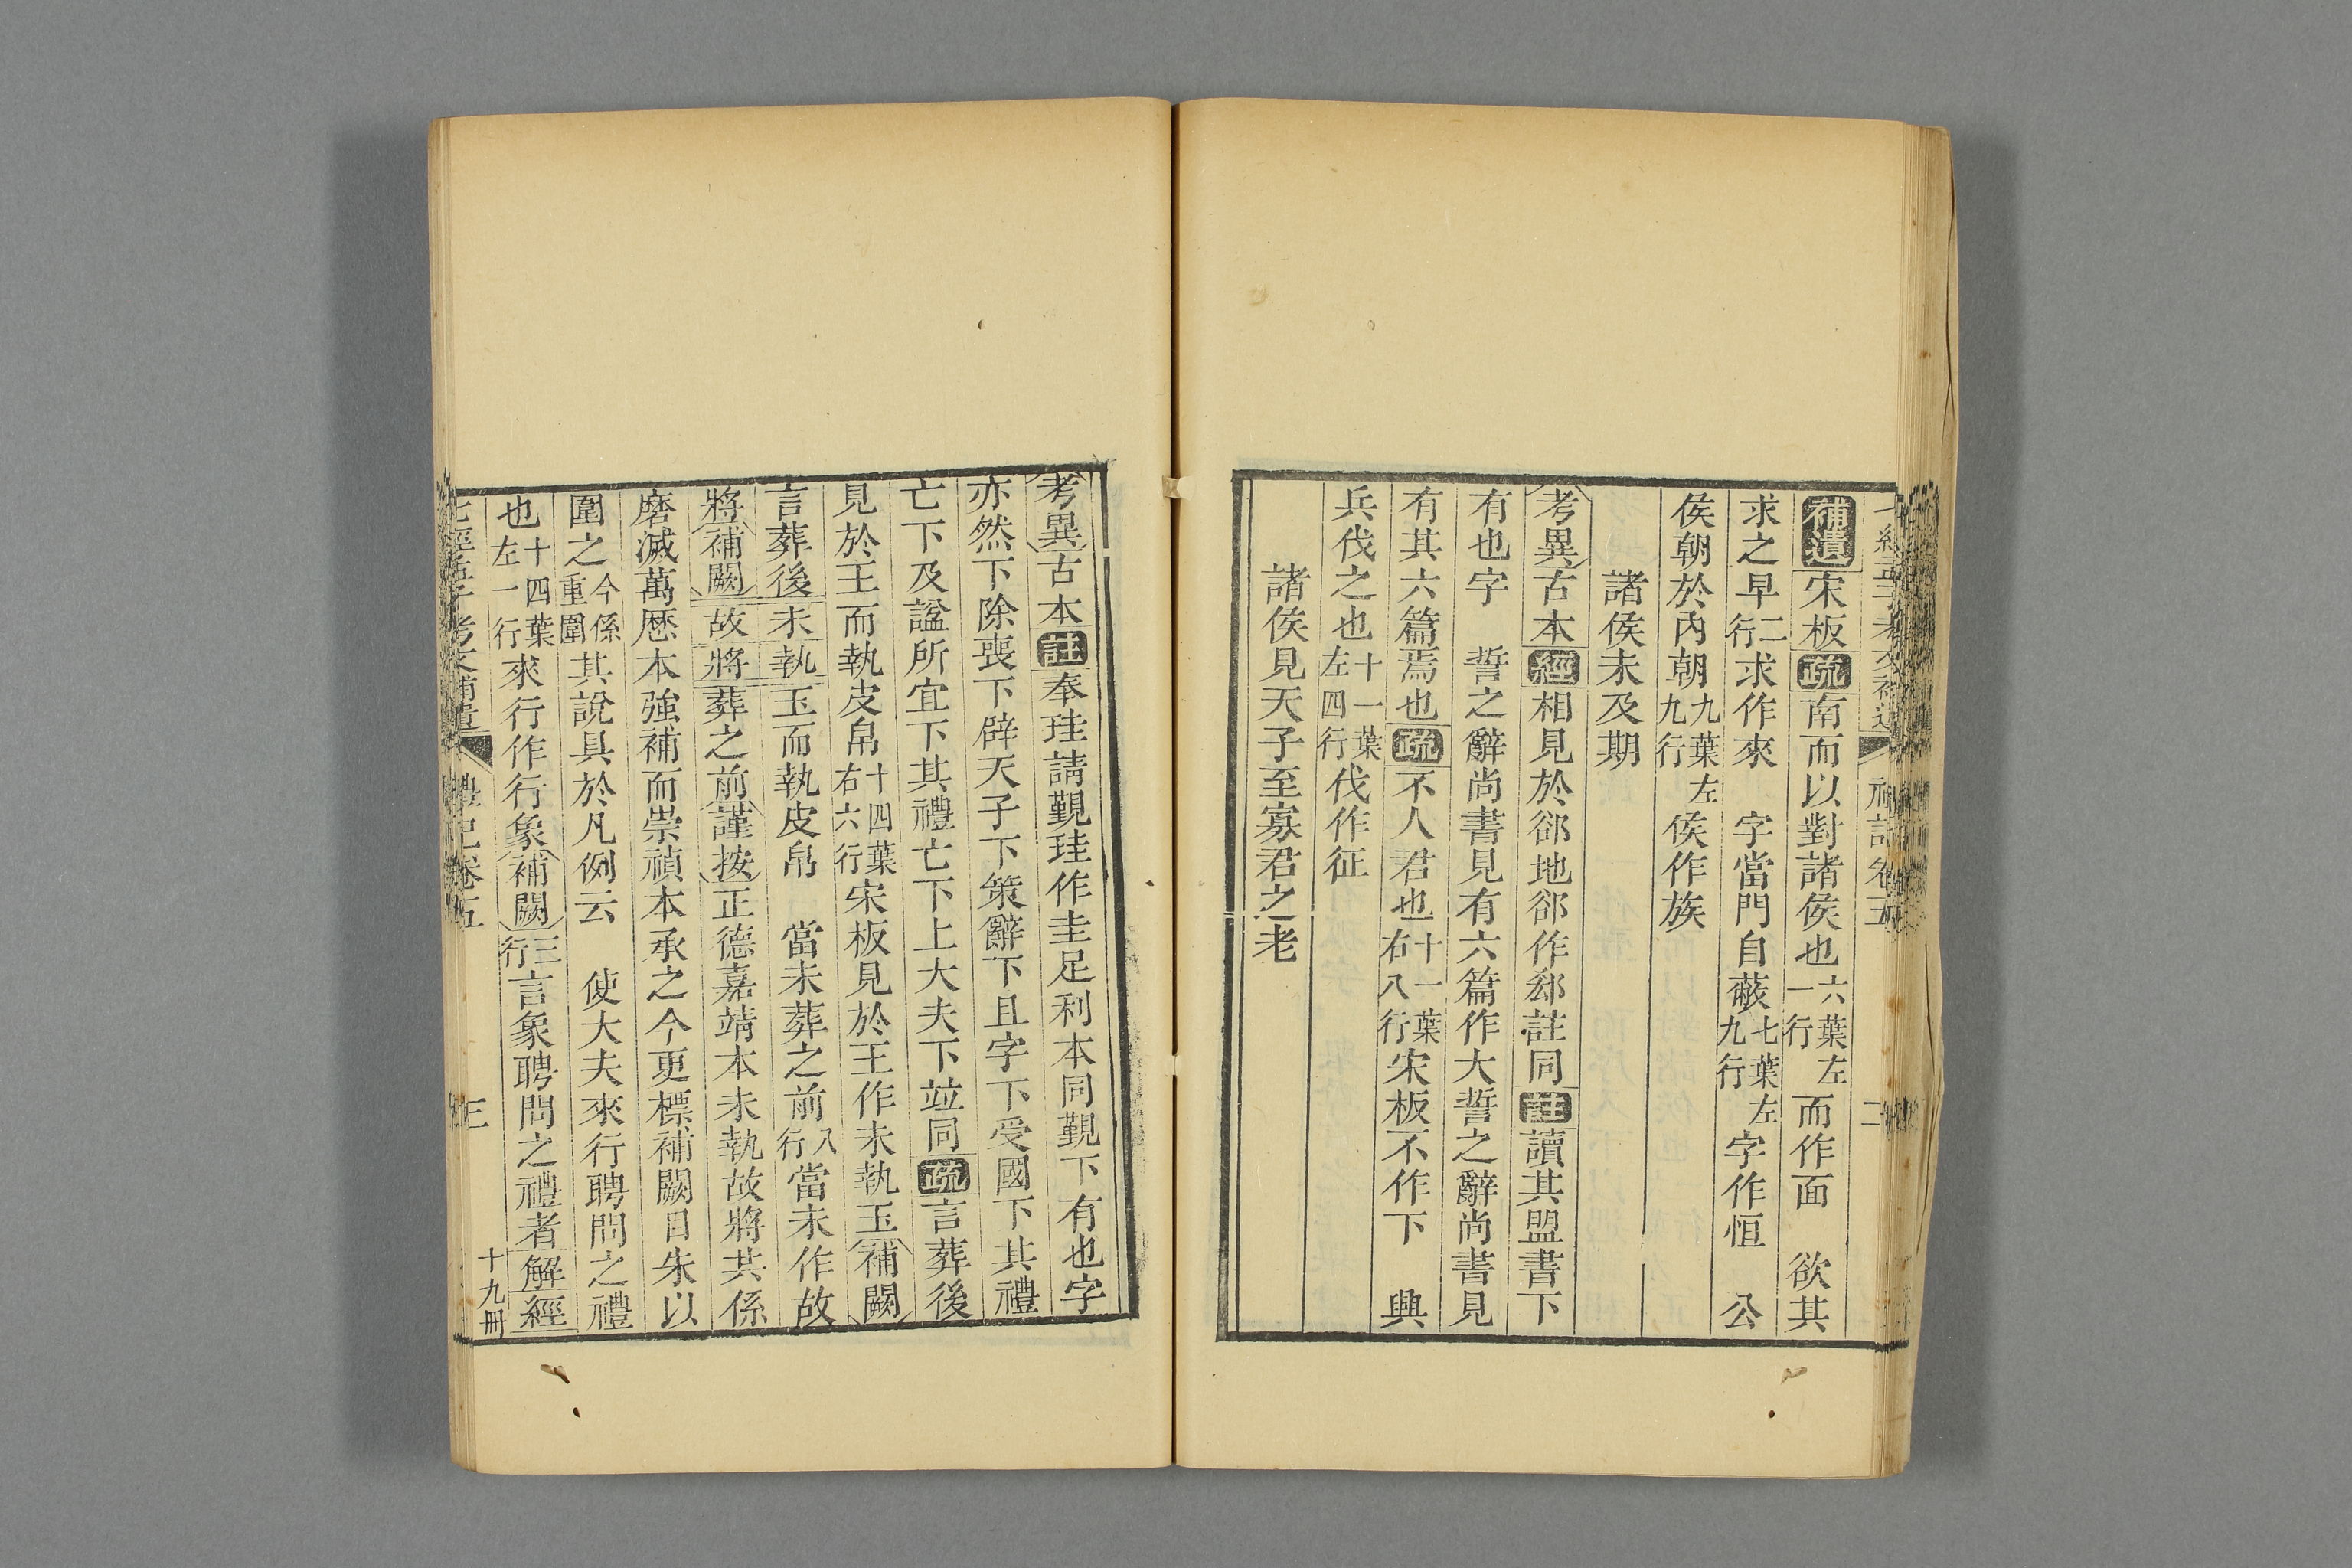 補遺宋板疏南而以對諸侯也六葉左一行而作面　欲其
求之早二行求作來　字當門自蔽七葉左九行字作恒　公
侯朝於內朝九葉左九行侯作族
諸侯未及期
考異古本經相見於郤地郤作郄註同註讀其盟書下
有也字　誓之辭尚書見有六篇作大誓之辭尚書見
有其六篇焉也疏不人君也十一葉右八行宋板不作下　興
兵伐之也十一葉左四行伐作征
諸侯見天子至寡君之老
考異古本註奉珪請覲珪作圭足利本同覲下有也字
亦然下除喪下辟天子下策辭下且字下受國下其禮
亡下及諡所宜下其禮亡下上大夫下竝同疏言葬後
見於王而執皮帛十四葉右六行宋板見於王作未執玉補闕
言葬後未執玉而執皮帛　當未葬之前八行當未作故
將補闕故將葬之前謹按正德嘉靖本未執故將共係
磨滅萬曆本強補而崇禎本承之今更標補闕目朱以
圍之今係重圍其說具於凡例云　使大夫來行聘問之禮
也十四葉左一行來行作行象補闕三行言象聘問之禮者解經
七經孟子考文補遺　禮記卷五　三　十九冊